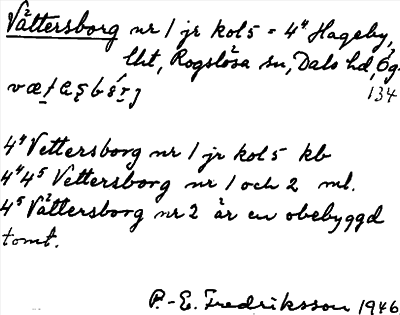 Vättersborg nr 1 jr kol 5 = 4⁴ Hageby,
lht, Rogslösa sn, Dals hd, Ög.
134
4⁴ Vettersborg nr 1 jr kol 5 kb
4⁴ 4⁵ Vettersborg nr 1 och 2 ml.
4⁵ Vättersborg nr 2 är en obebyggd
tomt.
P.-E. Fredriksson 1946